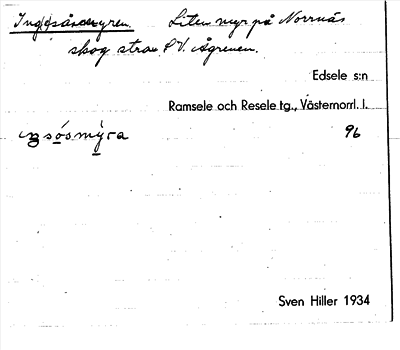 Liten myr på Norrnäs
skog strax V. Ågrenen.
Edsele s:n
Ramsele och Resele tg., Västernorrl. l.
96
Sven Hiller 1934